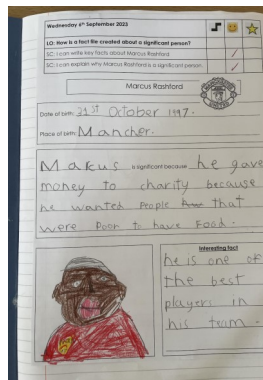 Wednesday 6th September 2023
LO: How is a fact file created about a significant person?
SC: I can write key facts about Marcus Rashford
SC: I can explain why Marcus Rashford is a significant person.
Marcus Rashford
Date of birth: 31st October 1997.
Place of birth: Mancher.
Makus is significant because he gave
money to charity because
he wanted people that
were Poor to have Food.
Interesting fact
he is one of
the best
players in
his team.